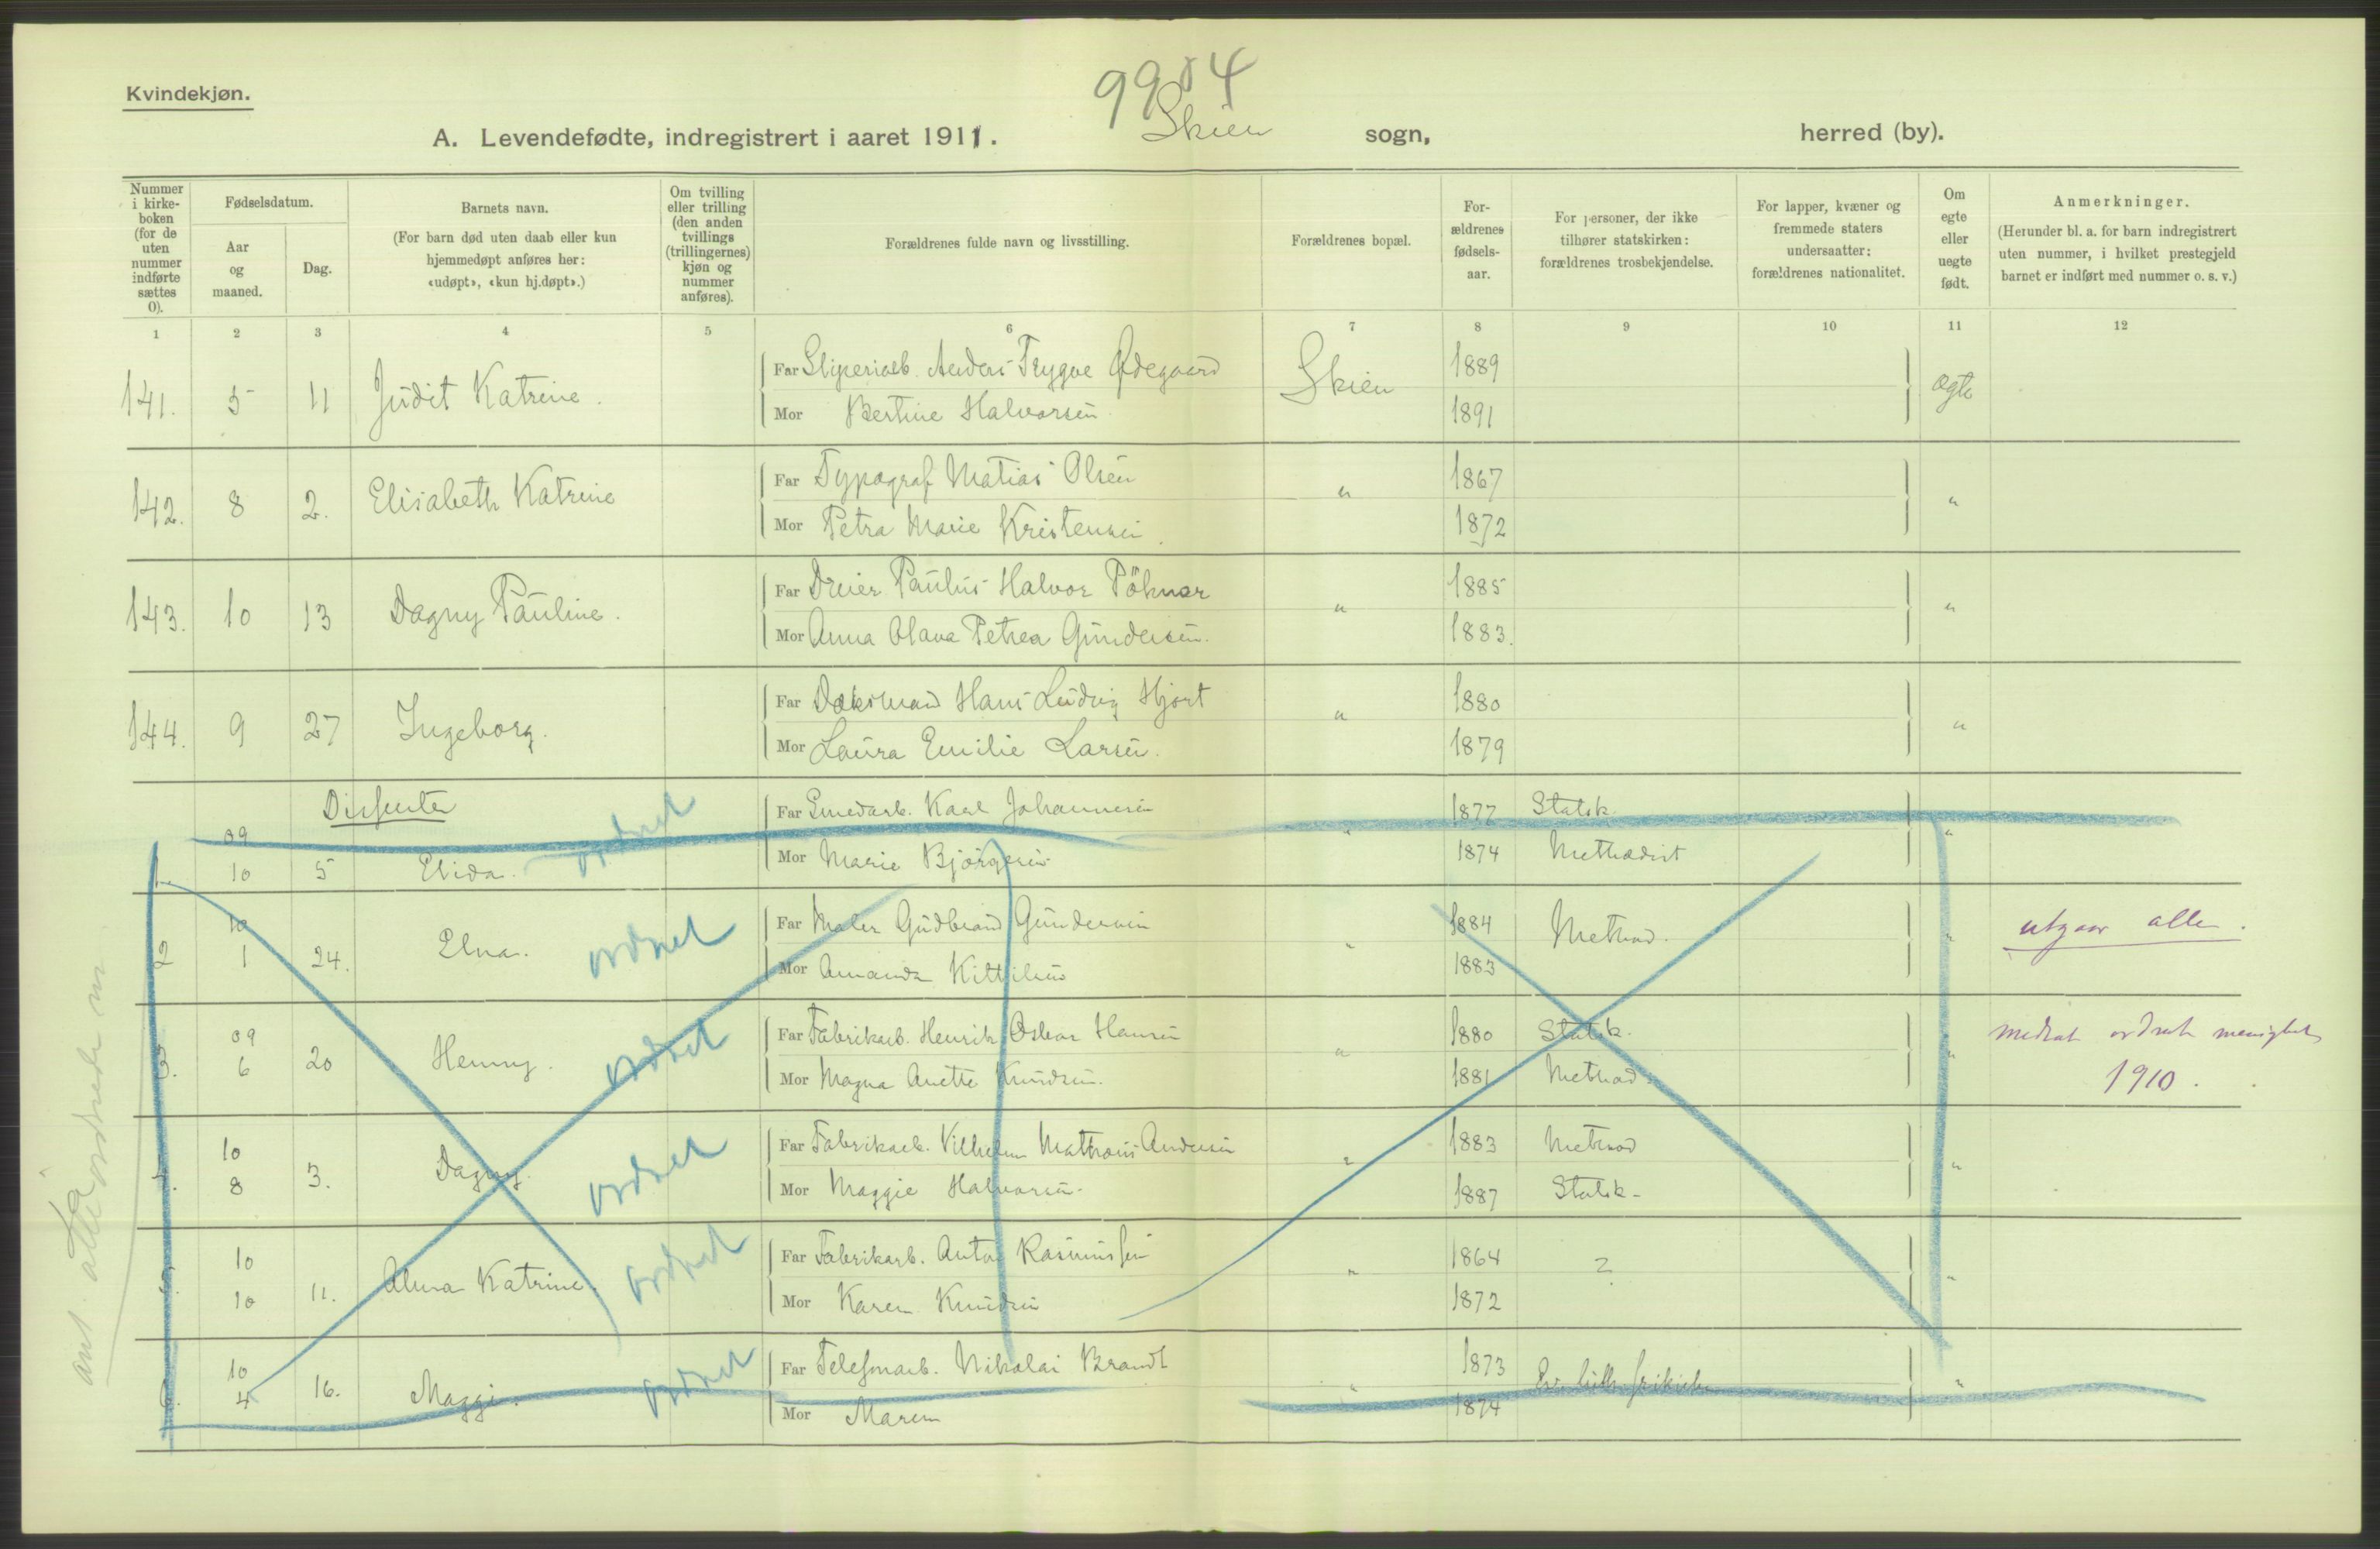 Kvindekjøn.
9984
A. Levendefødte, indregistrert i aaret 1911. Skien sogn, herred (by).
Nummer i kirkeboken (for de uten nummer indførte sættes 0).
Fødselsdatum.
Aar og maaned.
Dag.
Barnets navn.
(For barn død uten daab eller kun hjemmedøpt anføres her: «udøpt», «kun hj.døpt».)
Om tvilling eller trilling (den anden tvillings (trillingernes) kjøn og nummer anføres).
Forældrenes fulde navn og livsstilling.
Forældrenes bopæl.
Forældrenes fødselsaar.
For personer, der ikke tilhører statskirken: forældrenes trosbekjendelse.
For lapper, kvæner og fremmede staters undersaatter: forældrenes nationalitet.
Om egte eller uegte født.
Anmerkninger.
(Herunder bl. a. for barn indregistrert uten nummer, i hvilket prestegjeld barnet er indført med nummer o. s. v.)
1 2 3 4 5 6 7 8 9 10 11 12
141. 5 11 Judit Katrine. Far Sliperiarb. Anders Trygve Ødegaard Skien 1889 ægte
Mor Bertine Halvorsen 1891
142. 8 2. Elisabeth Katrine Far Typograf Matias Olsen " 1867 "
Mor Petra Marie Kristensen. 1872
143. 10 13 Dagny Pauline. Far Dreier Paulus Halvor Pöhner " 1885 "
Mor Anna Olava Petrea Gundersen. 1883.
144. 9 27 Ingeborg. Far Hans Ludvig Hjort " 1880 "
Mor Laura Emilie Larsen. 1879
Dissenter
1. 09 10 5 Elida. ordnet Far Smedarb. Karl Johannesen " 1877 Statsk. "
Mor Marie Björgesen 1874 Methodist
2 10 1 24. Elna. ordnet Far Maler Gudbrand Gundersen " 1884 Method. " utgaar alle.
Mor Amanda Kittilsen 1883
3. 09 6 20 Henny. ordnet Far Fabrikarb. Henrik Oskar Hansen " 1880 Statsk. "
Mor Magna Anette Knudsen. 1881 Method 1910.
4. 10 8 3. Dagny. ordnet Far Fabrikarb. Vilhelm Andersen " 1883 Method "
Mor Maggie Halvorsen. 1887 Statsk-
5. 10 10 11. Alma Katrine. ordnet Far Fabrikarb. Anton Rasmussen " 1864 ? "
Mor Karen Knudsen 1872
6. 10 4 16. Maggi. ordnet Far Nikolai Brandt " 1873 Ev. luth. frikirke "
Mor Maren 1874